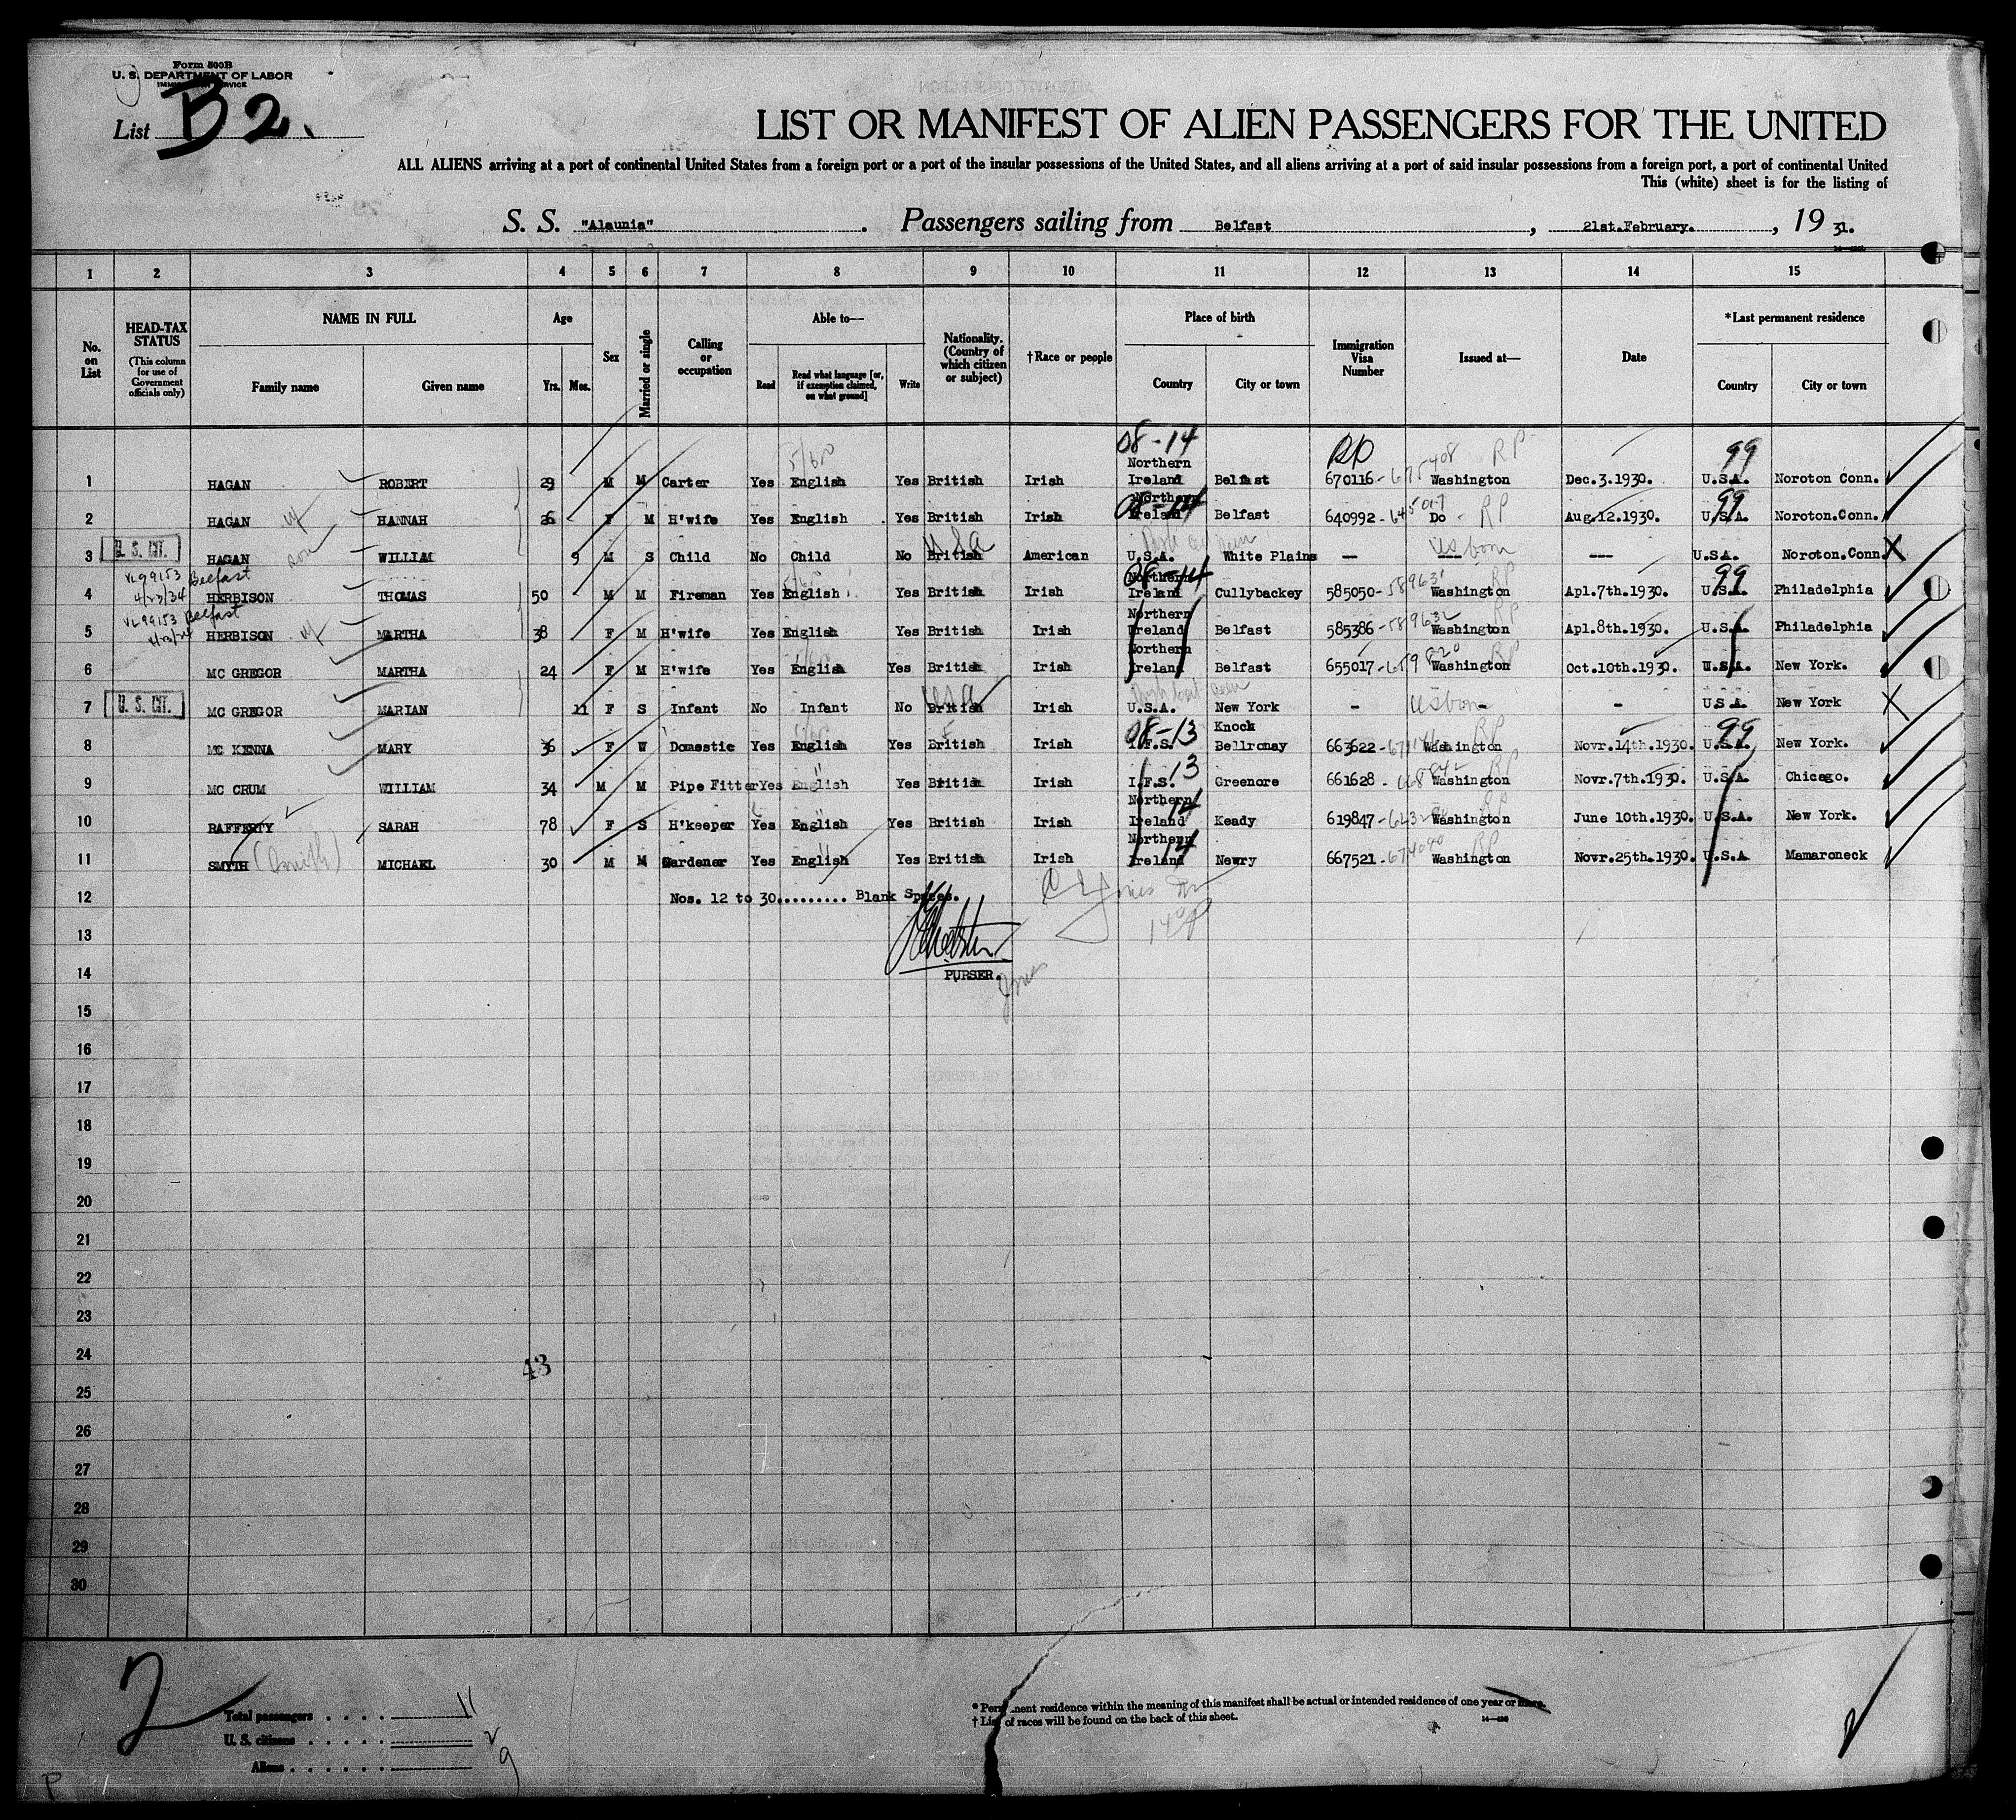 Form 500B
U. S. DEPARTMENT OF LABOR
IMMIGRATION SERVICE
List B2.
LIST OR MANIFEST OF ALIEN PASSENGERS FOR THE UNITED
ALL ALIENS arriving at a port of continental United States from a foreign port or a port of the insular possessions of the United States, and all aliens arriving at a port of said insular possessions from a foreign port, a port of continental United
This (white) sheet is for the listing of
S. S. "Alaunia". Passengers sailing from Belfast, 21st.February., 1931.
1 2 3 4 5 6 7 8 9 10 11 12 13 14 15
No. on List
HEAD-TAX STATUS (This column for use of Government officials only)
NAME IN FULL Family name Given name
Age Yrs. Mos.
Sex
Married or single
Calling or occupation
Able to— Read Read what language [or, if exemption claimed, on what ground] Write
Nationality. (Country of which citizen or subject)
†Race or people
Place of birth Country City or town
Immigration Visa Number
Issued at—
Date
*Last permanent residence Country City or town
08-14 RP 99
1 HAGAN ROBERT 29 M M Carter Yes English Yes British Irish Northern Ireland Belfast 670116 - 675408 Washington RP Dec.3.1930. U.S.A. Noroton Conn.
2 HAGAN wf HANNAH 26 F M H'wife Yes English Yes British Irish Northern Ireland 08-14 Belfast 640992 - 645017 Do - RP Aug.12.1930. 99 U.S.A. Noroton.Conn.
3 U. S. CIT. HAGAN son WILLIAM 9 M S Child No Child No British USA American U.S.A. White Plains — US born --- U.S.A. Noroton.Conn X
VL99153 Belfast 4/23/34
4 HERBISON THOMAS 50 M M Fireman Yes English Yes British Irish Northern Ireland 08-14 Cullybackey 585050 - 589631 Washington RP Apl.7th.1930. 99 U.S.A. Philadelphia
VL99153 Belfast
5 HERBISON wf MARTHA 38 F M H'wife Yes English Yes British Irish Northern Ireland Belfast 585386 - 589632 Washington RP Apl.8th.1930. U.S.A. Philadelphia
6 MC GREGOR MARTHA 24 F M H'wife Yes English Yes British Irish Northern Ireland Belfast 655017 - 659820 Washington RP Oct.10th.1930. U.S.A. New York.
7 U. S. CIT. MC GREGOR MARIAN 11 F S Infant No Infant No British USA Irish U.S.A. New York - US born - U.S.A. New York X
8 MC KENNA MARY 36 F W Domestic Yes English Yes British Irish 08-13 I.F.S. Knock Bellronay 663622 Washington RP Novr.14th.1930. 99 U.S.A. New York.
9 MC CRUM WILLIAM 34 M M Pipe Fitter Yes English Yes British Irish I.F.S. 13 Greenore 661628 Washington RP Novr.7th.1930. U.S.A. Chicago.
10 RAFFERTY SARAH 78 F S H'keeper Yes English Yes British Irish Northern Ireland 14 Keady 619847 Washington RP June 10th.1930. U.S.A. New York.
11 SMYTH (Smith) MICHAEL 30 M M Gardener Yes English Yes British Irish Northern Ireland 14 Newry 667521 - 674090 Washington RP Novr.25th.1930. U.S.A Mamaroneck
12 Nos. 12 to 30......... Blank Spaces.
13
14 PURSER.
15
16
17
18
19
20
21
22
23
24 43
25
26
27
28
29
30
2
Total passengers . . . . 11
U. S. citizens . . . . . 2
Aliens . . . . . . 9
* Permanent residence within the meaning of this manifest shall be actual or intended residence of one year or more.
† List of races will be found on the back of this sheet.